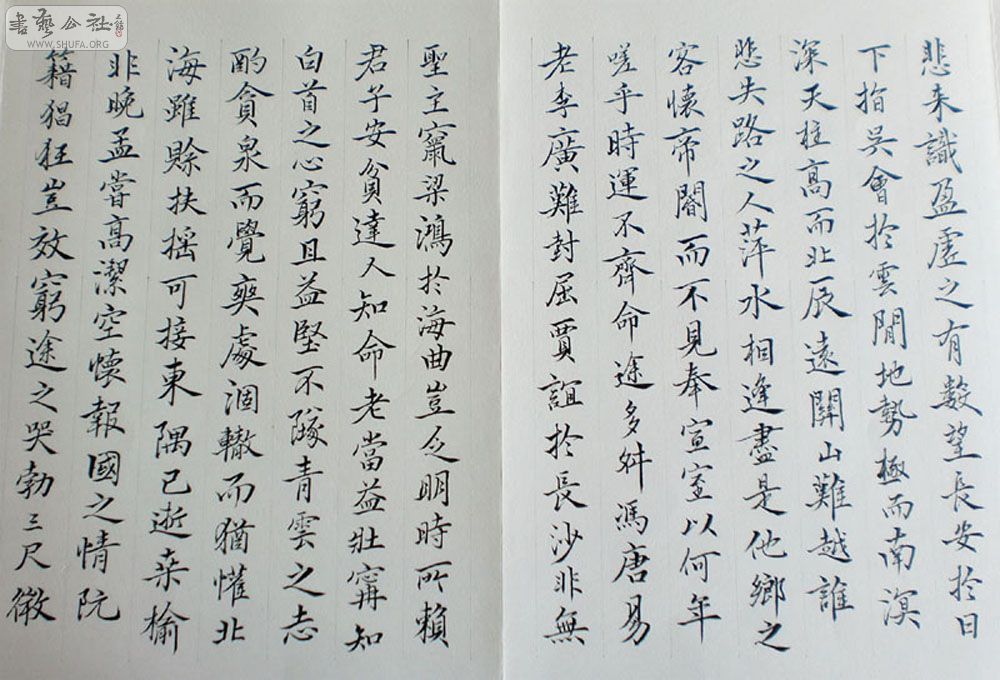 書藝公社
WWW.SHUFA.ORG
悲来識盈虛之有数望長安於日
下指吳會於雲間地勢極而南溟
深天柱高而北辰遠關山難越誰
悲失路之人萍水相逢盡是他鄉之
客懷帝閽而不見奉宣室以何年
嗟乎時運不齊命途多舛馮唐易
老李廣難封屈賈誼於長沙非無
聖主竄梁鴻於海曲豈乏明時所賴
君子安貧達人知命老當益壯寧知
白首之心窮且益堅不墜青雲之志
酌貪泉而覺爽處涸轍而猶懽北
海雖賒扶搖可接東隅已逝桒榆
非晚孟嘗高潔空懷報國之情阮
籍猖狂豈效窮途之哭勃三尺微